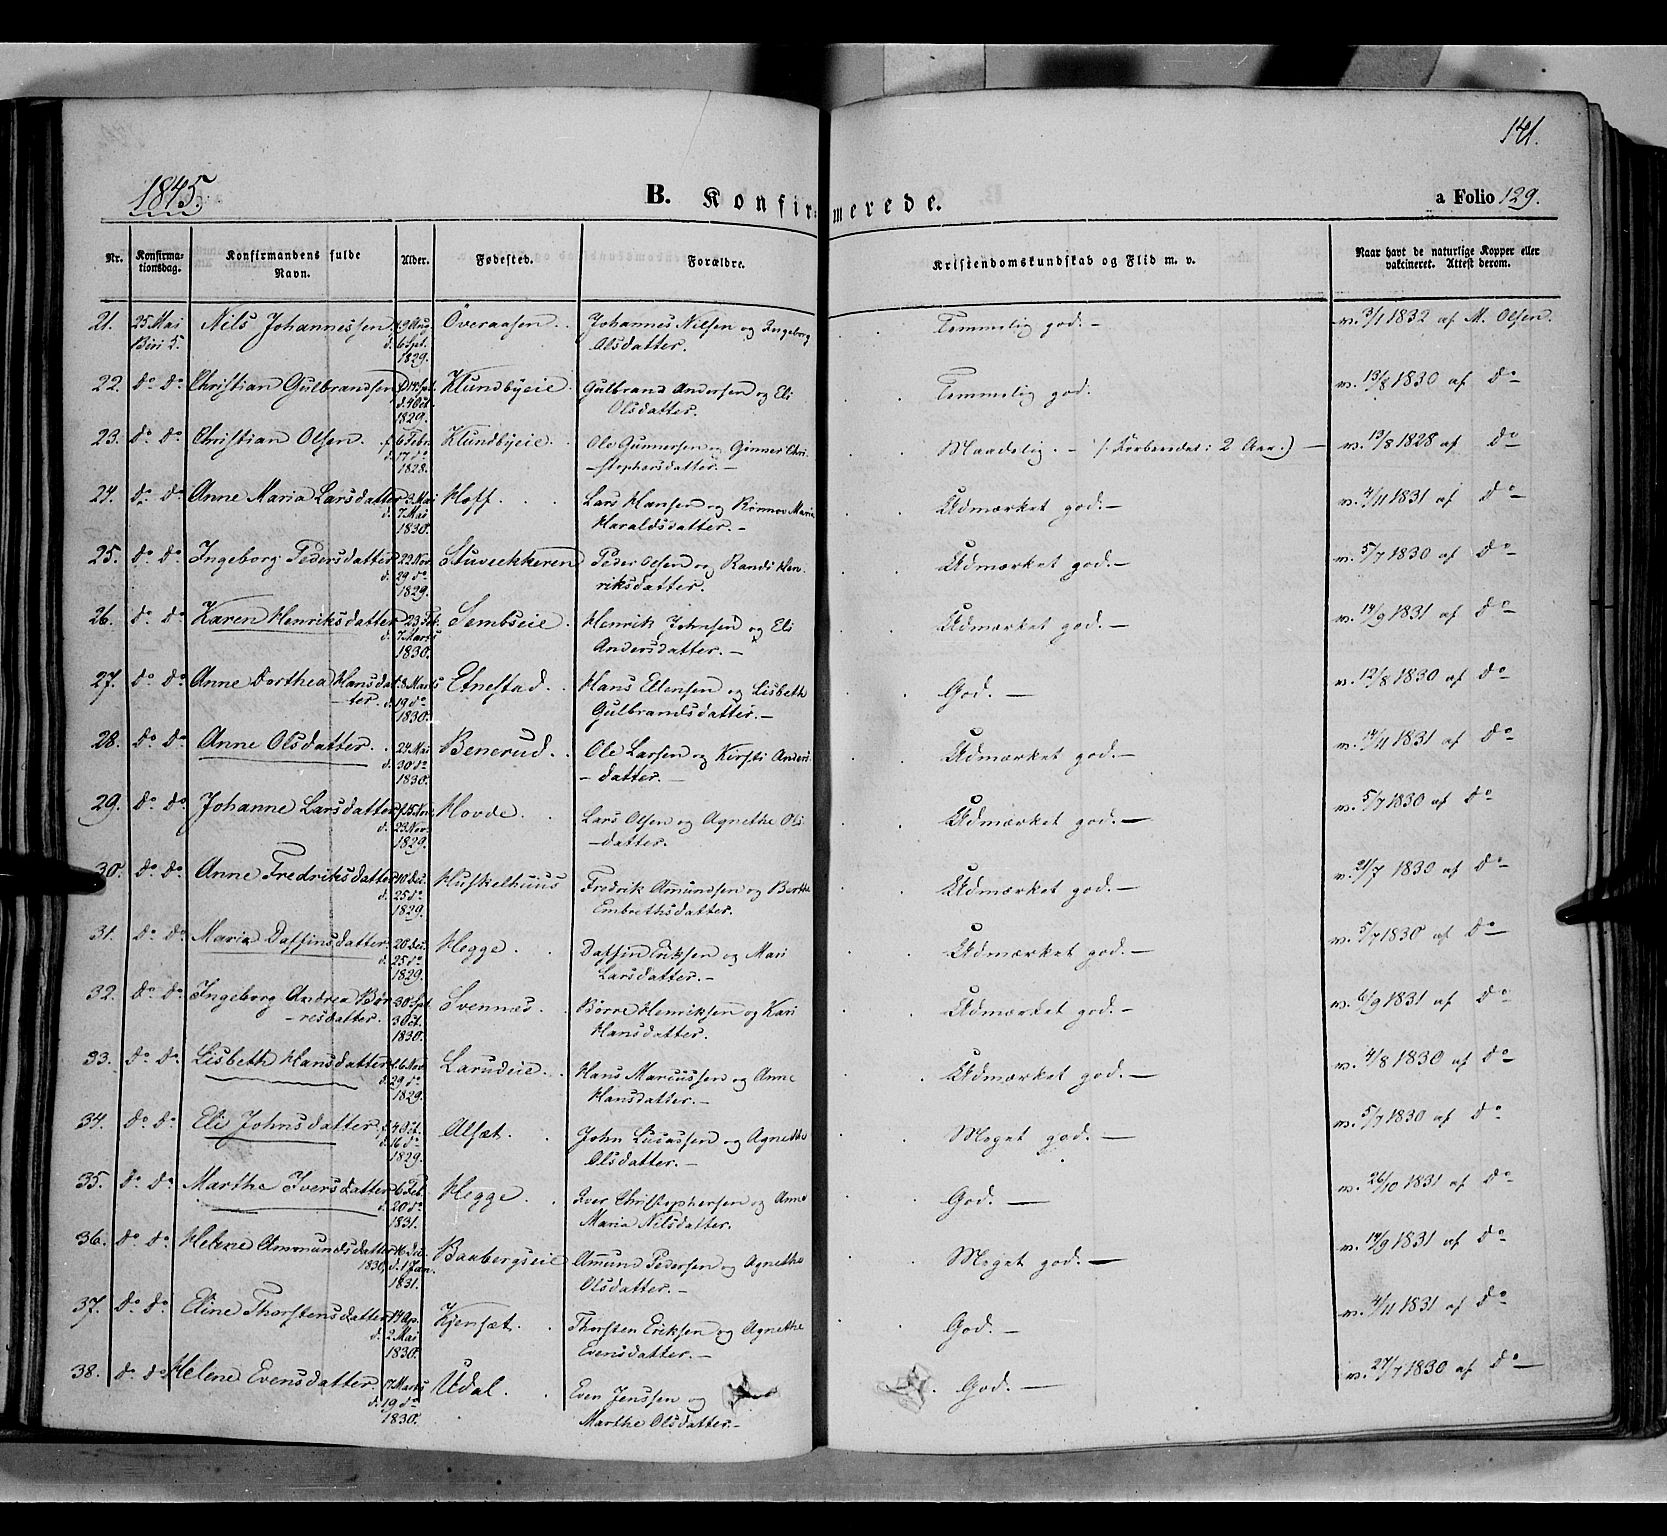 141.
1845.
B. Konfirmerede.
a Folio 129.
Nr. Konfirmationsdag. Konfirmandens fulde Navn. Alder. Fødested. Forældre. Kristendomskundskab og Flid m. v. Naar havt de naturlige Kopper eller vakcineret. Attest derom.
21. 25 Mai Nils Johannessen 19 Aug. Överaasen. Johannes Nilsen og Ingeborg Temmelig god. — v. 3/1 1832 af M. Olsen.
Biri K. d. 6 Sept. 1829. Olsdatter.
22. do do Christian Gulbrandsen d. 4 Oct. 1829. Klundbyeie Gulbrand Andersen og Eli Temmelig god. v. 13/8 1830 af do
Olsdatter.
23. do do Christian Olsen. f. 6 Febr. Klundbyeie. Ole Gunnersen og Ginner Chri- Maadelig. — (: Forberedet i 2 Aar.) — v. 13/8 1828 af do
d. 17 do 1828. -stophersdatter. —
24. do do Anne Maria Larsdatter 3 Mai Hoff. Lars Hansen og Rönnov Maria Udmærket god. — v. 4/11 1831 af do
d. 7 Mai 1830. Haraldsdatter. —
25. do do Ingeborg Pedersdatter 22 Nov. Stuveekkeren Peder Olsen og Randi Hen- Udmærket god. — v. 5/7 1830 af do
d. 29 do 1829. riksdatter.
26. do do Karen Henriksdatter 23 Feb. Sembseie. Henrik Johnsen og Eli Udmærket god. — v. 14/9 1831 af do
d. 7 Marts 1830. Andersdatter. —
27. do do Anne Dorthea Hansdat- 8 Marts Etnestad. Hans Ellensen og Lisbeth God. — v. 12/8 1830 af do
-ter. d. 19 do 1830. Gulbrandsdatter. —
28. do do Anne Olsdatter. 24 Mai Benerud. Ole Larsen og Kirsti Anders- Udmærket god. — v. 14/11 1831 af do
d. 30 do 1830. -datter. —
29. do do Johanne Larsdatter f. 15 Nov. Hovde. Lars Olsen og Agnethe Ols- Udmærket god. — v. 5/7 1830 af do
d. 23 Nov. 1829. -datter.
30. do do Anne Fredriksdatter 10 Dec. Huskelhuus Fredrik Amundsen og Berthe Udmærket god. — v. 21/7 1830 af do
d. 25 do 1829. Embrethsdatter.
31. do do Maria Daffinsdatter 20 Dec. Hegge. Daffin Eriksen og Mari Udmærket god. — v. 5/7 1830 af do
d. 25 do 1829. Larsdatter. —
32. do do Ingeborg Andrea Bör- 30 Spt. Svennæs. Börre Henriksen og Kari Udmærket god. — v. 6/9 1831 af do
-resdatter. 3 Oct. 1830. Hansdatter.
33. do do Lisbeth Hansdatter 16 Nov. Larudeie. Hans Marcussen og Anne Udmærket god. — v. 4/8 1830 af do
d. 29 do 1829. Hansdatter. —
34. do do Eli Johnsdatter f. 4 Oct. Alfæt. John Lucassen og Agnethe Meget god. — v. 5/7 1830 af do
d. 16 do 1829. Olsdatter. —
35. do do Marthe Iversdatter 6 Feb. Hegge. Iver Christophersen og Anne God. — v. 26/10 1831 af do
d. 20 do 1831. Maria Nilsdatter.
36. do do Helene Ammundsdatter 16 Dec. Baabergseie Amund Pedersen og Agnethe Meget god. — v. 14/9 1831 af do
1830, d. 1 Jan. 1831. Olsdatter. —
37. do do Eline Thorstensdatter 14 Ap. Kjensæt. Thorsten Eriksen og Agnethe God. — v. 4/11 1831 af do
d. 2 Mai 1830. Evensdatter. —
38. do do Helene Evensdatter. 7 Marts Udal. Even Jenssen og God. — v. 27/7 1830 af do —
d. 19 do 1830. Marthe Olsdatter —